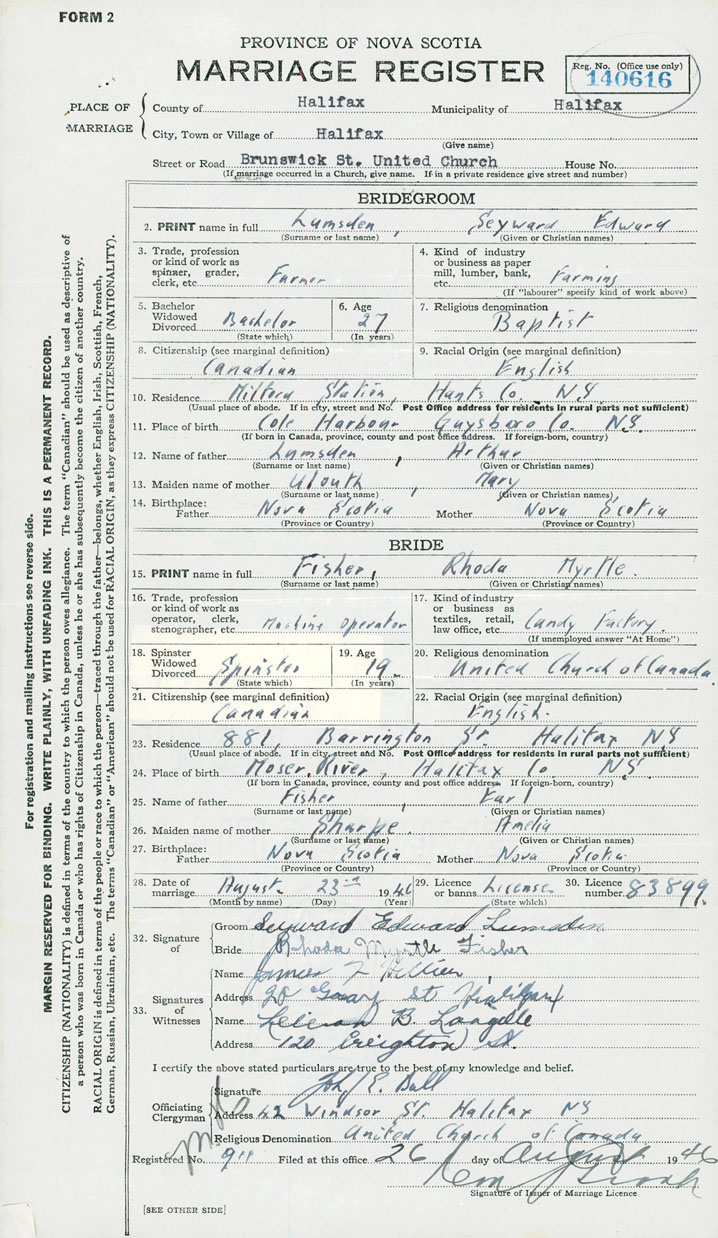 FORM 2
PROVINCE OF NOVA SCOTIA
MARRIAGE REGISTER
Reg. No. (Office use only)
140616
PLACE OF MARRIAGE
County of Halifax Municipality of Halifax
City, Town or Village of Halifax
(Give name)
Street or Road Brunswick St. United Church House No.
(If marriage occurred in a Church, give name. If in a private residence give street and number)
BRIDEGROOM
2. PRINT name in full Lumsden, Seyward Edward
(Surname or last name) (Given or Christian names)
3. Trade, profession or kind of work as spinner, grader, clerk, etc. Farmer
4. Kind of industry or business as paper mill, lumber, bank, etc. Farming
(If "labourer" specify kind of work above)
5. Bachelor Widowed Divorced Bachelor
(State which)
6. Age 27
(In years)
7. Religious denomination Baptist
8. Citizenship (see marginal definition) Canadian
9. Racial Origin (see marginal definition) English
10. Residence Milford Station, Hants Co. N.S.
(Usual place of abode. If in city, street and No. Post Office address for residents in rural parts not sufficient)
11. Place of birth Cole Harbour Guysboro Co. N.S.
(If born in Canada, province, county and post office address. If foreign-born, country)
12. Name of father Lumsden, Arthur
(Surname or last name) (Given or Christian names)
13. Maiden name of mother , Mary
(Surname or last name) (Given or Christian names)
14. Birthplace: Father Nova Scotia Mother Nova Scotia
(Province or Country) (Province or Country)
BRIDE
15. PRINT name in full Fisher, Rhoda Myrtle.
(Surname or last name) (Given or Christian names)
16. Trade, profession or kind of work as operator, clerk, stenographer, etc. Machine Operator
17. Kind of industry or business as textiles, retail, law office, etc. Candy Factory.
(If unemployed answer "At Home")
18. Spinster Widowed Divorced Spinster
(State which)
19. Age 19
(In years)
20. Religious denomination United Church of Canada.
21. Citizenship (see marginal definition) Canadian
22. Racial Origin (see marginal definition) English.
23. Residence 881, Barrington St. Halifax NS
(Usual place of abode. If in city, street and No. Post Office address for residents in rural parts not sufficient)
24. Place of birth Moser River, Halifax Co NS
(If born in Canada, province, county and post office address. If foreign-born, country)
25. Name of father Fisher Earl
(Surname or last name) (Given or Christian names)
26. Maiden name of mother Sharpe Amelia
(Surname or last name) (Given or Christian names)
27. Birthplace: Father Nova Scotia Mother Nova Scotia
(Province or Country) (Province or Country)
28. Date of marriage August 23rd 1946
(Month by name) (Day) (Year)
29. Licence or banns License
(State which)
30. Licence number 83899
32. Signature of
Groom Seyward Edward Lumsden
Bride Rhoda Myrtle Fisher
33. Signatures of Witnesses
Name James Hillier
Address St Halifax
Name B. Langille
Address 120 Creighton St.
I certify the above stated particulars are true to the best of my knowledge and belief.
Officiating Clergyman
Signature E. Bull
Address 42 Windsor St. Halifax NS
Religious Denomination United Church of Canada
Registered No. 911 Filed at this office 26 day of August 1946
Signature of Issuer of Marriage Licence
[SEE OTHER SIDE]
For registration and mailing instructions see reverse side.
MARGIN RESERVED FOR BINDING. WRITE PLAINLY, WITH UNFADING INK. THIS IS A PERMANENT RECORD.
CITIZENSHIP (NATIONALITY) is defined in terms of the country to which the person owes allegiance. The term "Canadian" should be used as descriptive of
a person who was born in Canada or who has rights of Citizenship in Canada, unless he or she has subsequently become the citizen of another country.
RACIAL ORIGIN is defined in terms of the people or race to which the person—traced through the father—belongs, whether English, Irish, Scottish, French,
German, Russian, Ukrainian, etc. The terms "Canadian" or "American" should not be used for RACIAL ORIGIN, as they express CITIZENSHIP (NATIONALITY).